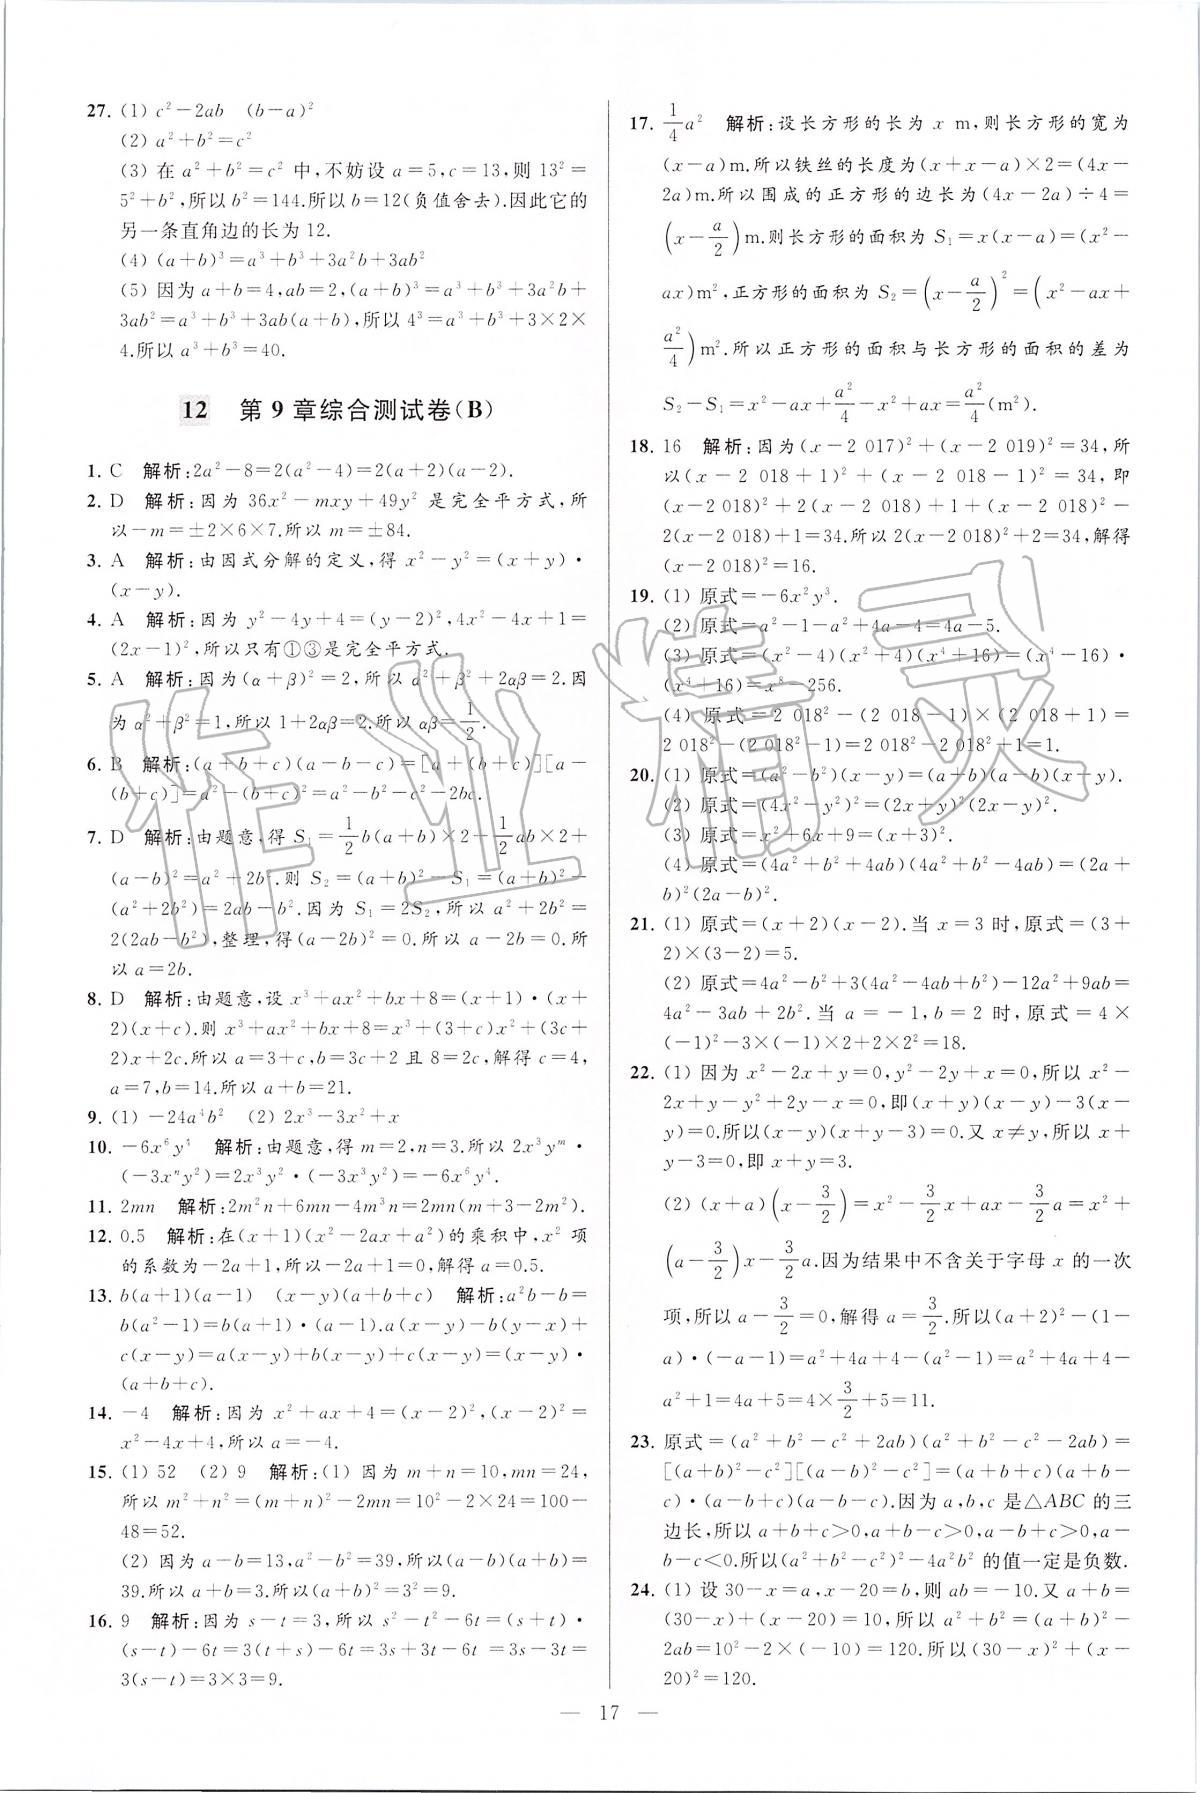 27. (1) c²−2ab (b−a)²
(2) a²+b²=c²
(3) 在 a²+b²=c² 中,不妨设 a=5,c=13,则 13²=
5²+b²,所以 b²=144.所以 b=12(负值舍去).因此它的
另一条直角边的长为 12.
(4) (a+b)³=a³+b³+3a²b+3ab²
(5) 因为 a+b=4,ab=2,(a+b)³=a³+b³+3a²b+
3ab²=a³+b³+3ab(a+b),所以 4³=a³+b³+3×2×
4.所以 a³+b³=40.
12 第 9 章综合测试卷(B)
1. C 解析:2a²−8=2(a²−4)=2(a+2)(a−2).
2. D 解析:因为 36x²−mxy+49y² 是完全平方式,所
以−m=±2×6×7.所以 m=±84.
3. A 解析:由因式分解的定义,得 x²−y²=(x+y)·
(x−y).
4. A 解析:因为 y²−4y+4=(y−2)²,4x²−4x+1=
(2x−1)²,所以只有①③是完全平方式.
5. A 解析:因为(α+β)²=2,所以 α²+β²+2αβ=2.因
为 α²+β²=1,所以 1+2αβ=2.所以 αβ=1/2.
6. B 解析:(a+b+c)(a−b−c)=[a+(b+c)][a−
(b+c)]=a²−(b+c)²=a²−b²−c²−2bc.
7. D 解析:由题意,得 S₁=1/2 b(a+b)×2+1/2 ab×2+
(a−b)²=a²+2b².则 S₂=(a+b)²−S₁=(a+b)²−
(a²+2b²)=2ab−b².因为 S₁=2S₂,所以 a²+2b²=
2(2ab−b²),整理,得(a−2b)²=0.所以 a−2b=0.所
以 a=2b.
8. D 解析:由题意,设 x³+ax²+bx+8=(x+1)·(x+
2)(x+c).则 x³+ax²+bx+8=x³+(3+c)x²+(3c+
2)x+2c.所以 a=3+c,b=3c+2 且 8=2c,解得 c=4,
a=7,b=14.所以 a+b=21.
9. (1) −24a⁴b² (2) 2x³−3x²+x
10. −6x⁶y⁴ 解析:由题意,得 m=2,n=3.所以 2x³yᵐ·
(−3xⁿy²)=2x³y²·(−3x³y²)=−6x⁶y⁴.
11. 2mn 解析:2m²n+6mn−4m³n=2mn(m+3−2m²).
12. 0.5 解析:在(x+1)(x²−2ax+a²)的乘积中,x² 项
的系数为−2a+1,所以−2a+1=0,解得 a=0.5.
13. b(a+1)(a−1) (x−y)(a+b+c) 解析:a²b−b=
b(a²−1)=b(a+1)·(a−1).a(x−y)−b(y−x)+
c(x−y)=a(x−y)+b(x−y)+c(x−y)=(x−y)·
(a+b+c).
14. −4 解析:因为 x²+ax+4=(x−2)²,(x−2)²=
x²−4x+4,所以 a=−4.
15. (1) 52 (2) 9 解析:(1) 因为 m+n=10,mn=24,
所以 m²+n²=(m+n)²−2mn=10²−2×24=100−
48=52.
(2) 因为 a−b=13,a²−b²=39,所以(a−b)(a+b)=
39.所以 a+b=3.所以(a+b)²=3²=9.
16. 9 解析:因为 s−t=3,所以 s²−t²−6t=(s+t)·
(s−t)−6t=3(t+s)−6t=3s+3t−6t=3s−3t=
3(s−t)=3×3=9.
17. 1/4 a² 解析:设长方形的长为 x m,则长方形的宽为
(x−a)m.所以铁丝的长度为(x+x−a)×2=(4x−
2a)m.所以围成的正方形的边长为(4x−2a)÷4=
(x−a/2)m.则长方形的面积为 S₁=x(x−a)=(x²−
ax)m²,正方形的面积为 S₂=(x−a/2)²=(x²−ax+
a²/4)m².所以正方形的面积与长方形的面积的差为
S₂−S₁=x²−ax+a²/4−x²+ax=a²/4(m²).
18. 16 解析:因为(x−2 017)²+(x−2 019)²=34,所
以(x−2 018+1)²+(x−2 018−1)²=34,即
(x−2 018)²+2(x−2 018)+1+(x−2 018)²−
2(x−2 018)+1=34.所以 2(x−2 018)²+2=34,解得
(x−2 018)²=16.
19. (1) 原式=−6x²y³.
(2) 原式=a²−1−a²+4a−4=4a−5.
(3) 原式=(x²−4)(x²+4)(x⁴+16)=(x⁴−16)·
(x⁴+16)=x⁸−256.
(4) 原式=2 018²−(2 018−1)×(2 018+1)=
2 018²−(2 018²−1)=2 018²−2 018²+1=1.
20. (1) 原式=(a²−b²)(x−y)=(a+b)(a−b)(x−y).
(2) 原式=(4x²−y²)²=(2x+y)²(2x−y)².
(3) 原式=x²+6x+9=(x+3)².
(4) 原式=(4a²+b²+4ab)(4a²+b²−4ab)=(2a+
b)²(2a−b)².
21. (1) 原式=(x+2)(x−2).当 x=3 时,原式=(3+
2)×(3−2)=5.
(2) 原式=4a²−b²+3(4a²−4ab+b²)−12a²+9ab=
4a²−3ab+2b².当 a=−1,b=2 时,原式=4×
(−1)²−3×(−1)×2+2×2²=18.
22. (1) 因为 x²−2x+y=0,y²−2y+x=0,所以 x²−
2x+y−y²+2y−x=0,即(x+y)(x−y)−3(x−
y)=0.所以(x−y)(x+y−3)=0.又 x≠y,所以 x+
y−3=0,即 x+y=3.
(2) (x+a)(x−3/2)=x²−3/2 x+ax−3/2 a=x²+
(a−3/2)x−3/2 a.因为结果中不含关于字母 x 的一次
项,所以 a−3/2=0,解得 a=3/2.所以(a+2)²−(1−
a)·(−a−1)=a²+4a+4−(a²−1)=a²+4a+4−
a²+1=4a+5=4×3/2+5=11.
23. 原式=(a²+b²−c²+2ab)(a²+b²−c²−2ab)=
[(a+b)²−c²][(a−b)²−c²]=(a+b+c)(a+b−
c)·(a−b+c)(a−b−c).因为 a,b,c 是△ABC 的三
边长,所以 a+b+c>0,a+b−c>0,a−b+c>0,a−
b−c<0.所以(a²+b²−c²)²−4a²b² 的值一定是负数.
24. (1) 设 30−x=a,x−20=b,则 ab=−10.又 a+b=
(30−x)+(x−20)=10,所以 a²+b²=(a+b)²−
2ab=10²−2×(−10)=120.所以(30−x)²+(x−
20)²=120.
作业精灵
— 17 —